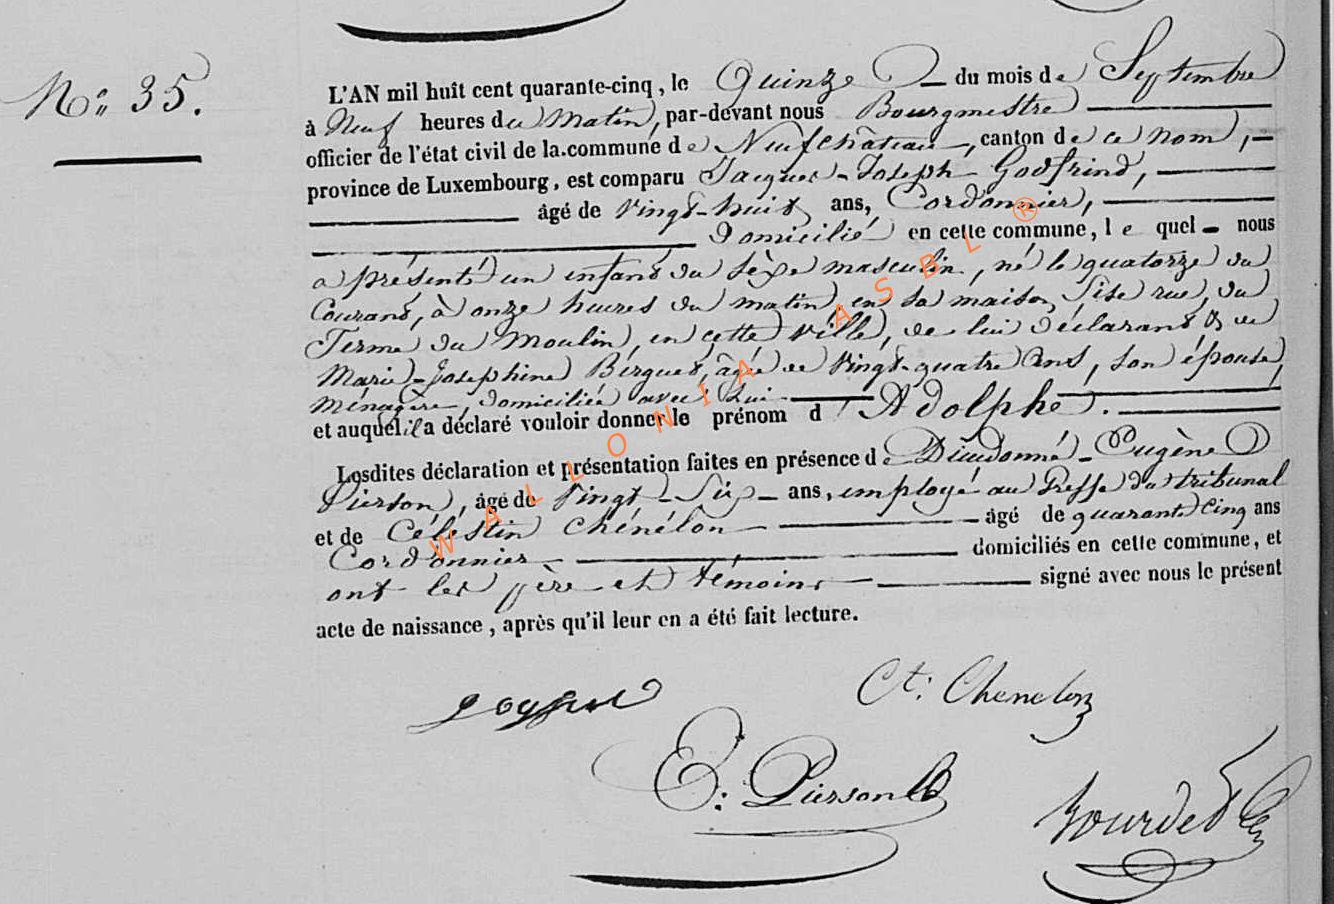 N° 35.
L'AN mil huit cent quarante-cinq, le Quinze du mois de Septembre
à Neuf heures du matin, par-devant nous Bourgmestre
officier de l'état civil de la commune de Neufchâteau, canton de ce nom,
province de Luxembourg, est comparu Jacques-Joseph Godfrind,
âgé de vingt-huit ans, Cordonnier,
Domicilié en cette commune, lequel nous
a présenté un enfant du sèxe masculin, né le quatorze du
Courant, à onze heures du matin, en sa maison, Sise rue du
Terme du Moulin, en cette ville, de lui déclarant & de
Marie-Josephine Bergues, âgée de vingt-quatre ans, son épouse,
ménagère, domiciliée avec lui
et auquel il a déclaré vouloir donner le prénom d'Adolphe.
Lesdites déclaration et présentation faites en présence de Dieudonné-Eugène
Pierson, âgé de vingt-six ans, employé au Greffe du tribunal
et de Célestin Chénélon âgé de quarante cinq ans
Cordonnier domiciliés en cette commune, et
ont les père et témoins signé avec nous le présent
acte de naissance, après qu'il leur en a été fait lecture.
Ct: Chenelon
E: Pierson
Bourdet
WALLONIA ASBL ®